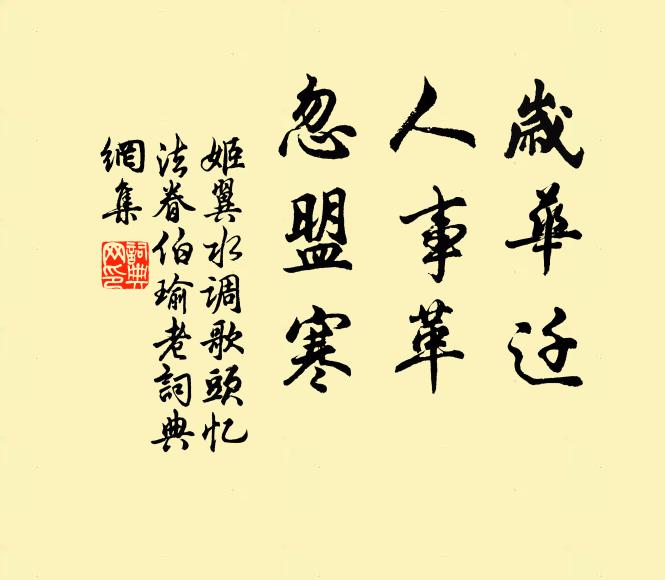 歲華迁
人事革
忽盟寒
姬翼水调歌頭忆
法眷伯瑜老詞典
網集
詞典
网印